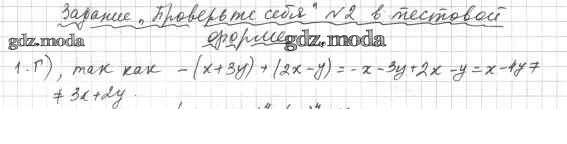 Задание „Проверьте себя" №2 в тестовой
форме
gdz.moda
gdz.moda
1. Г), так как -(x+3y)+(2x-y)=-x-3y+2x-y=x-4y≠
≠ 3x+2y.